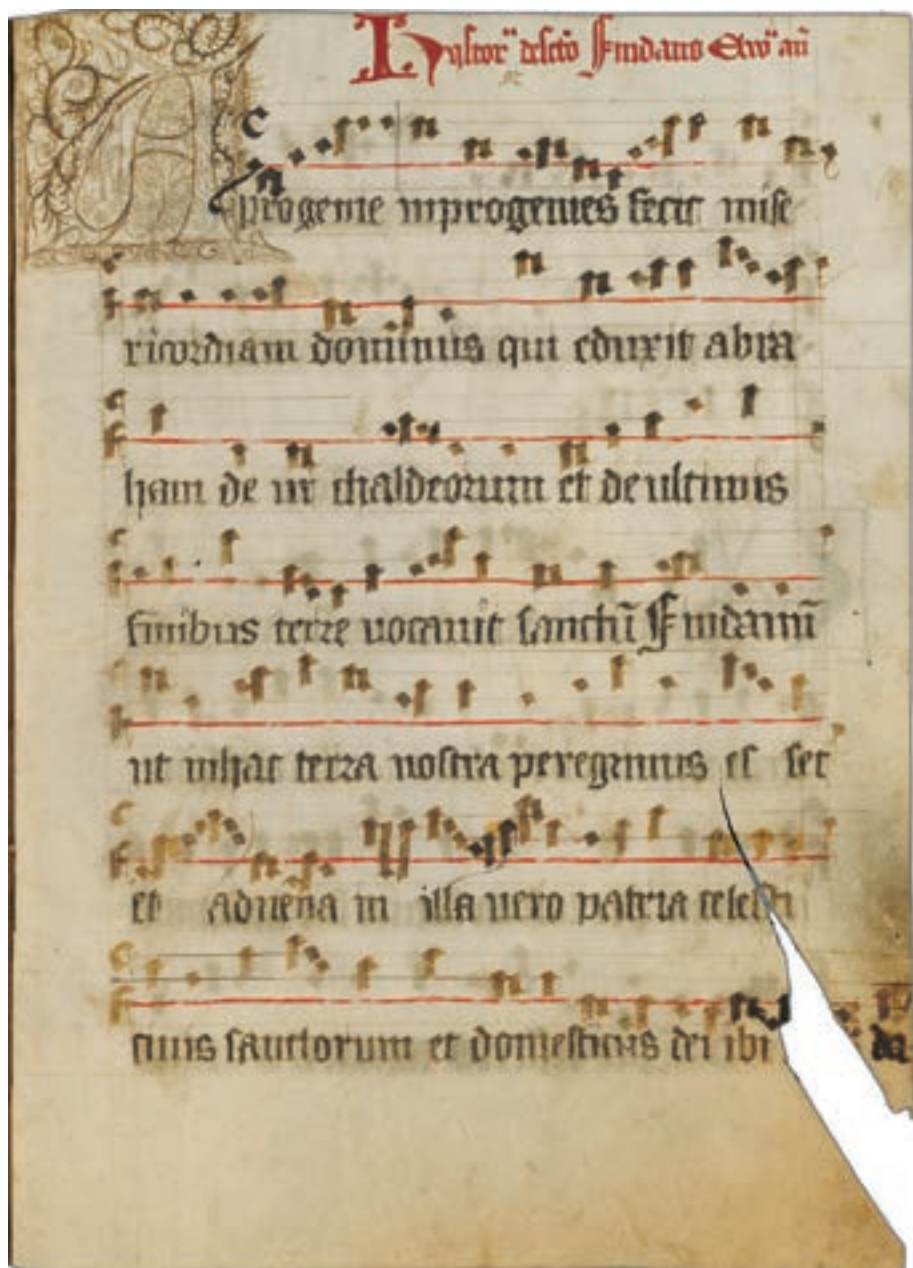 Hystor² de scto Findano Ad vꝰ an̄
A progenie in progenies fecit mise
ricordiam dominus qui eduxit abra
ham de ur chaldeorum et de ultimis
finibus terre vocavit sanctū Findanū
ut in hac terra nostra peregrinus es set
et advena in illa vero patria celesti
civis sanctorum et domesticus dei ibi
da